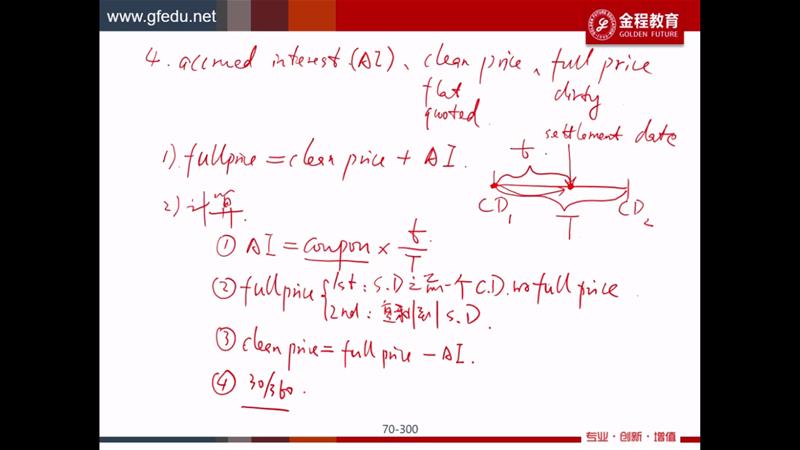 www.gfedu.net
金程教育
GOLDEN FUTURE
4. accrued interest (AI)、clean price、full price
flat
quoted
dirty
settlement date
t
1). full price = clean price + AI.
CD1
CD2
T
2) 计算.
① AI = coupon × t/T.
② full price { 1st: S.D之前一个C.D.的full price.
2nd: 复利到 S.D.
③ clean price = full price − AI.
④ 30/360.
70-300
专业·创新·增值